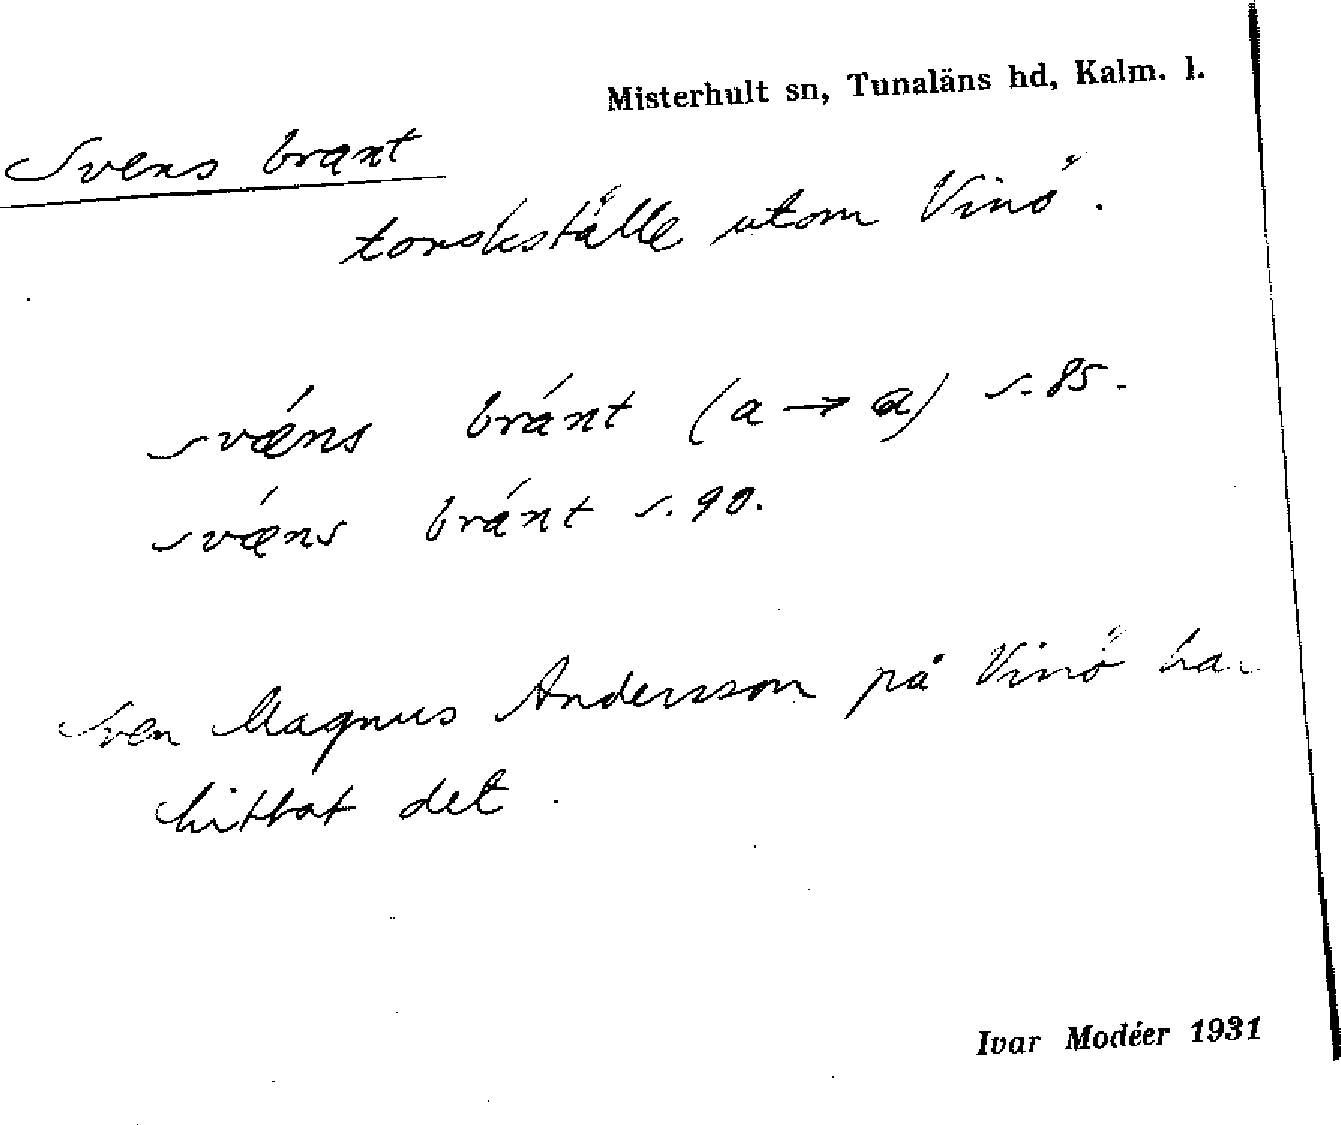 Misterhult sn, Tunaläns hd, Kalm. l.
Svens brant
torskställe utom Vinö.
svǽns bránt (a → ɑ) s. 85.
svǽns bránt s. 90.
Sven Magnus Andersson på Vinö har
hittat det.
Ivar Modéer 1931